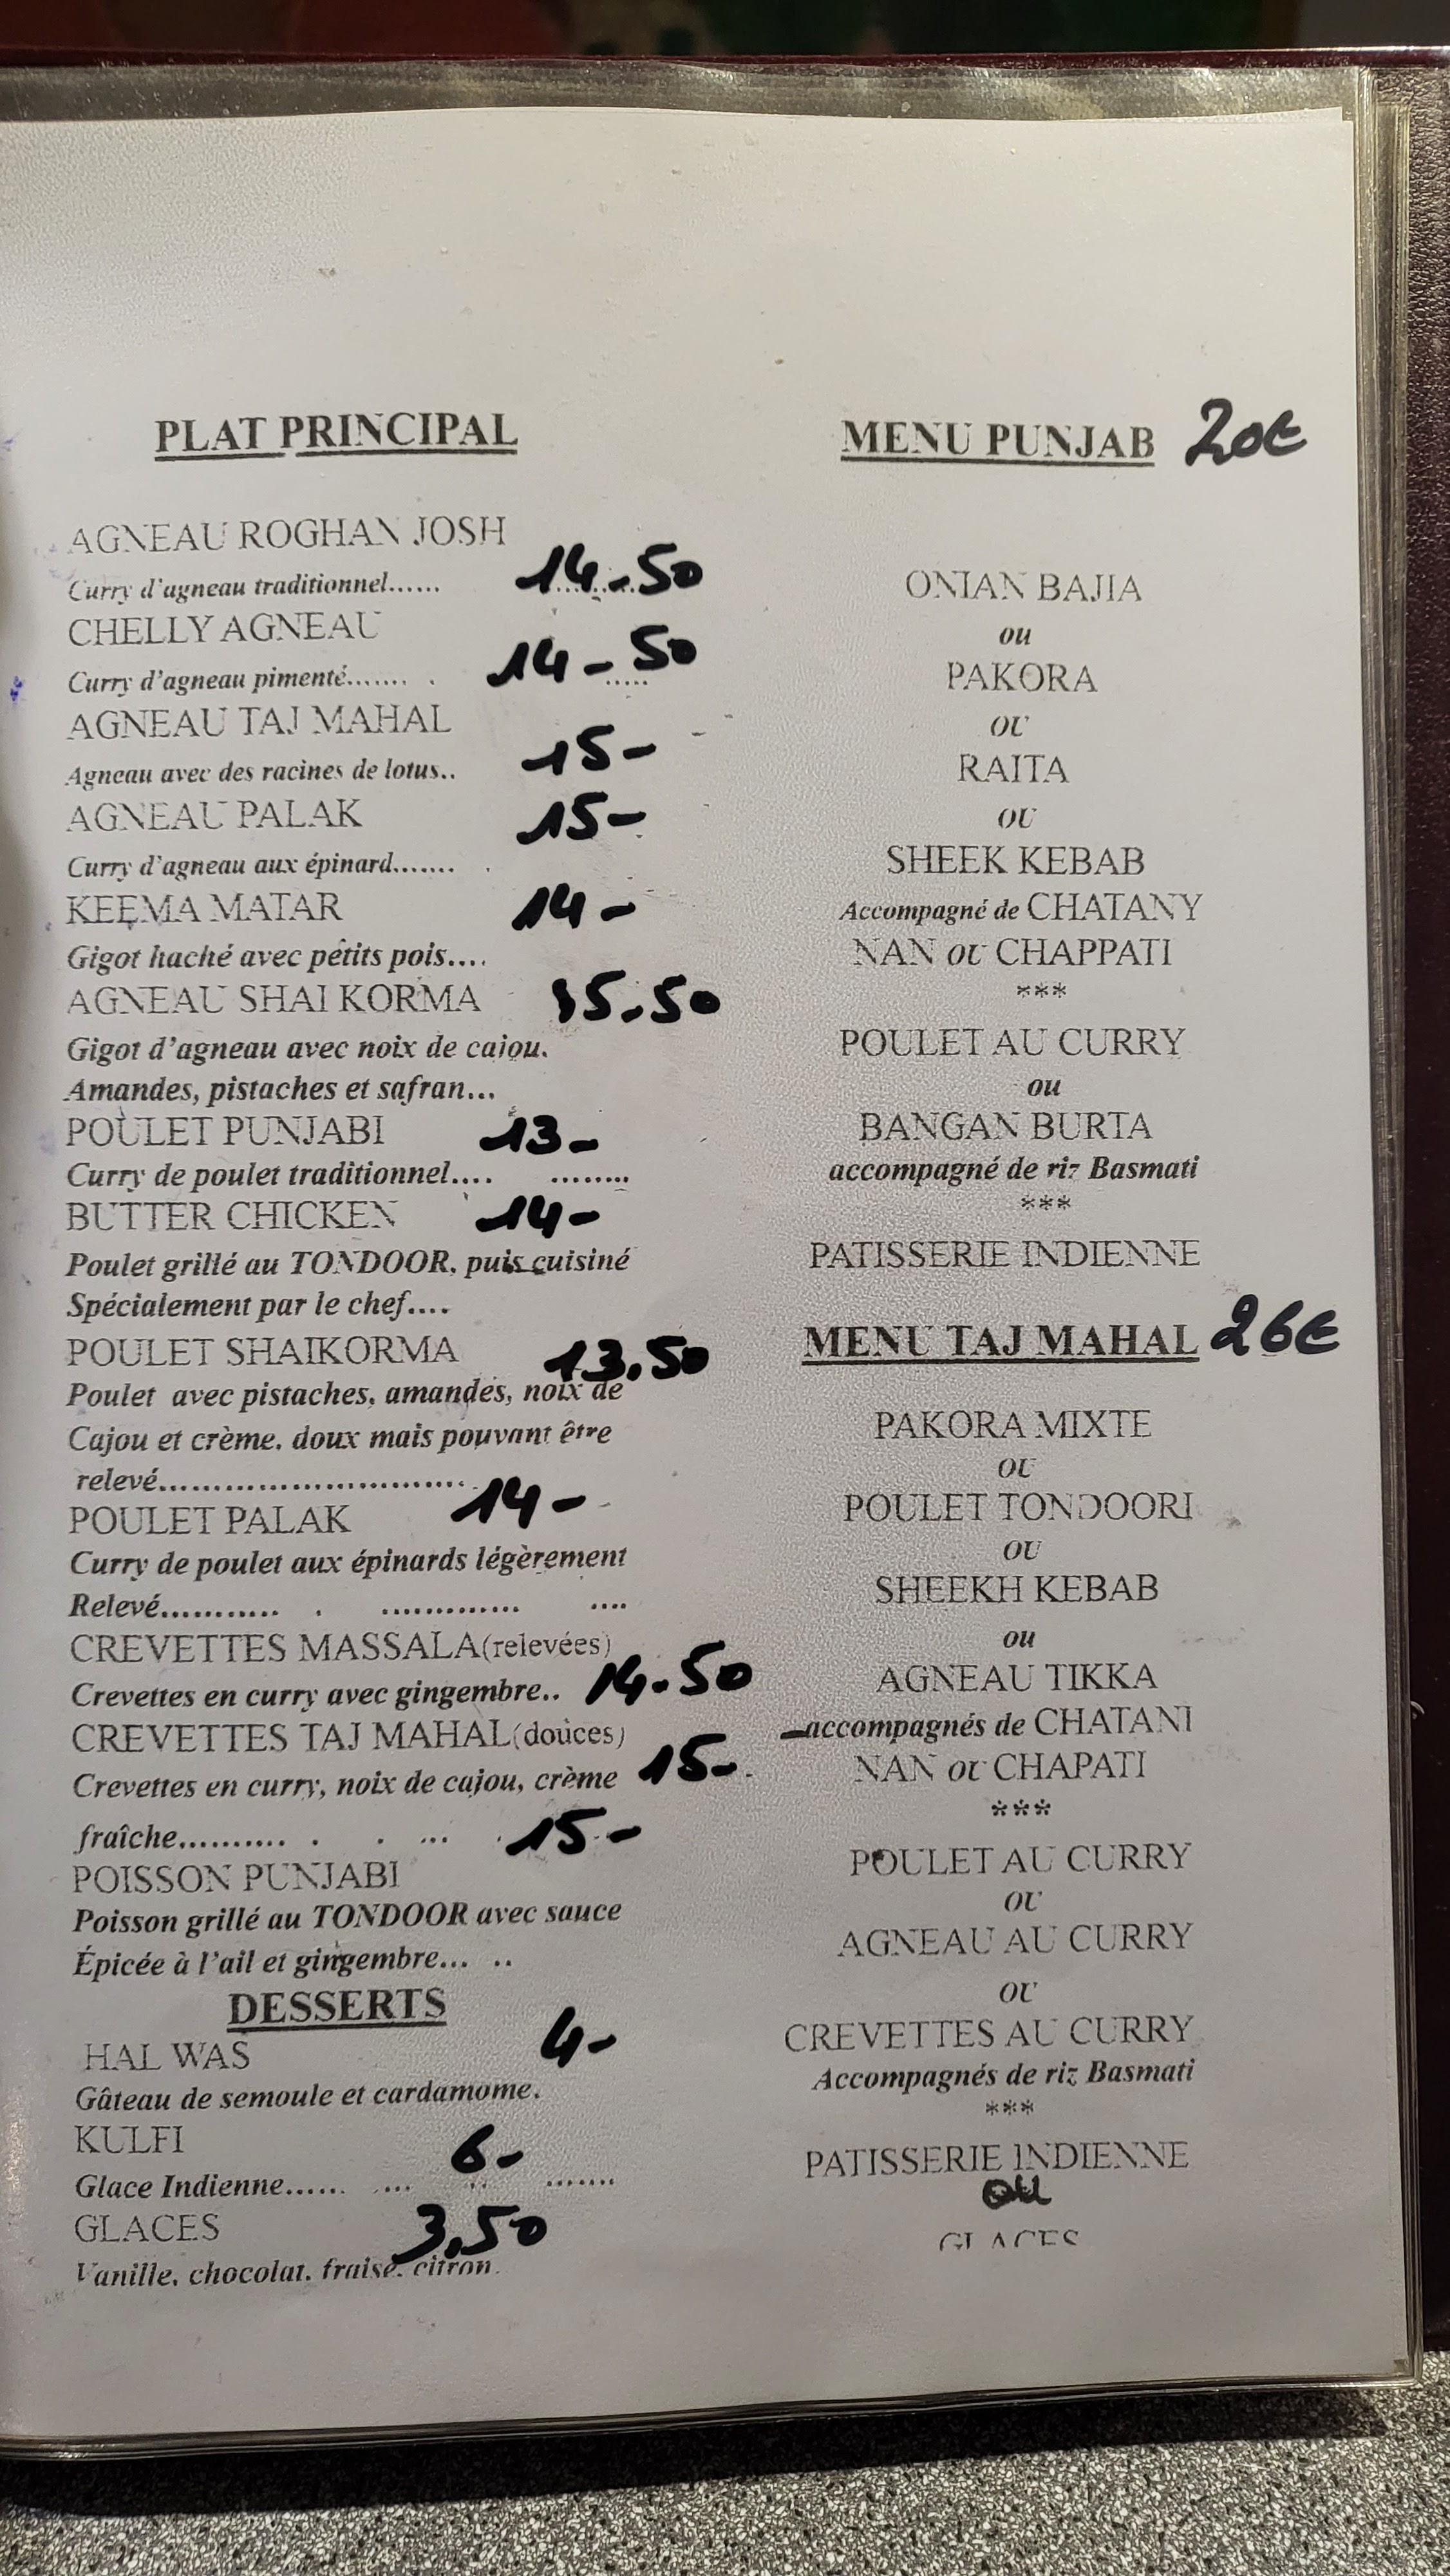 PLAT PRINCIPAL
AGNEAU ROGHAN JOSH
Curry d'agneau traditionnel...... 14-50
CHELLY AGNEAU
Curry d'agneau pimenté....... . 14-50
AGNEAU TAJ MAHAL
15-
Agneau avec des racines de lotus..
AGNEAU PALAK 15-
Curry d'agneau aux épinard.......
KEEMA MATAR 14-
Gigot haché avec petits pois....
AGNEAU SHAI KORMA 15.50
Gigot d'agneau avec noix de cajou.
Amandes, pistaches et safran...
POULET PUNJABI 13-
Curry de poulet traditionnel.... ........
BUTTER CHICKEN 14-
Poulet grillé au TONDOOR, puis cuisiné
Spécialement par le chef....
POULET SHAIKORMA 13.50
Poulet avec pistaches, amandes, noix de
Cajou et crème. doux mais pouvant être
relevé..............................
POULET PALAK 14-
Curry de poulet aux épinards légèrement
Relevé........... . ............. ....
CREVETTES MASSALA(relevées)
Crevettes en curry avec gingembre.. 14.50
CREVETTES TAJ MAHAL(douces)
Crevettes en curry, noix de cajou, crème 15-
fraîche.......... . . ... . 15-
POISSON PUNJABI
Poisson grillé au TONDOOR avec sauce
Épicée à l'ail et gingembre... ..
DESSERTS
HAL WAS 4-
Gâteau de semoule et cardamome.
KULFI 6-
Glace Indienne...... .... .. .......
GLACES 3,50
Vanille, chocolat, fraise, citron.
MENU PUNJAB 20€
ONIAN BAJIA
ou
PAKORA
OU
RAITA
OU
SHEEK KEBAB
Accompagné de CHATANY
NAN OU CHAPPATI
***
POULET AU CURRY
ou
BANGAN BURTA
accompagné de riz Basmati
***
PATISSERIE INDIENNE
MENU TAJ MAHAL 26€
PAKORA MIXTE
OU
POULET TONDOORI
OU
SHEEKH KEBAB
ou
AGNEAU TIKKA
accompagnés de CHATANI
NAN OU CHAPATI
***
POULET AU CURRY
OU
AGNEAU AU CURRY
OU
CREVETTES AU CURRY
Accompagnés de riz Basmati
***
PATISSERIE INDIENNE
OU
GLACES